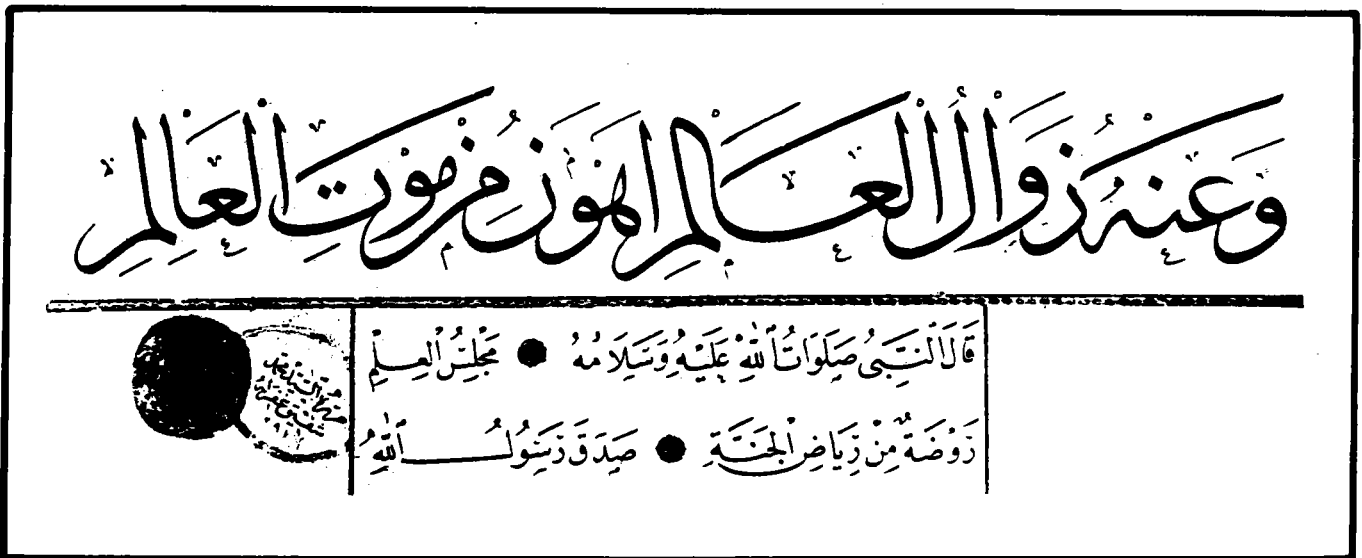 وَعَنْهُ زَوَالُ الْعَالَمِ اَهْوَنُ مِنْ مَوْتِ الْعَالِمِ
قَالَ النَّبِىُّ صَلَوَاتُ ٱللّٰهِ عَلَيْهِ وَسَلَامُهُ ● مَجْلِسُ الْعِلْمِ
رَوْضَةٌ مِنْ رِيَاضِ الْجَنَّةِ ● صَدَقَ رَسُولُ ٱللّٰهِ